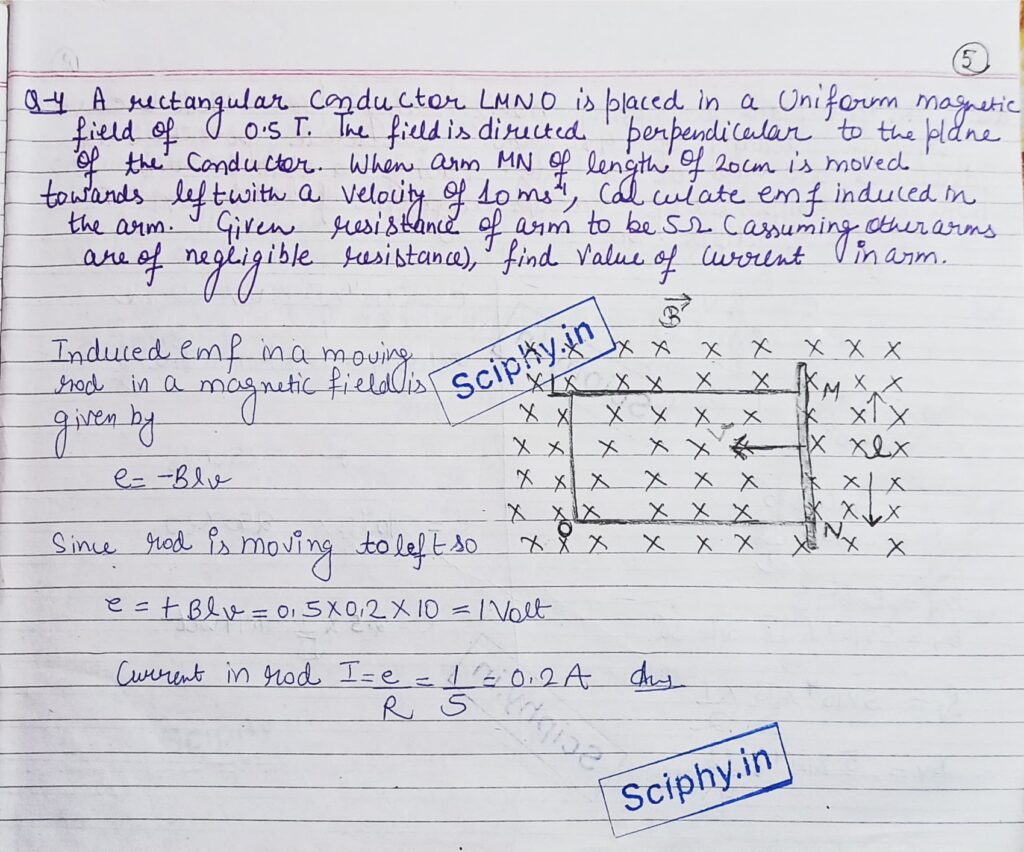 5
Q-4 A rectangular Conductor LMNO is placed in a Uniform magnetic
field of 0.5 T. The field is directed perpendicular to the plane
of the Conductor. When arm MN of length of 20cm is moved
towards left with a velocity of 10 ms⁻¹, Calculate emf induced in
the arm. Given resistance of arm to be 5Ω (assuming other arms
are of negligible resistance), find value of current in arm.
B⃗
Induced emf in a moving
rod in a magnetic field is
given by
e = -Blv
Since rod is moving to left so
e = + Blv = 0.5 X 0.2 X 10 = 1 Volt
Current in rod I = e/R = 1/5 = 0.2 A Ans
Sciphy.in
L
M
v
l
O
N
Sciphy.in